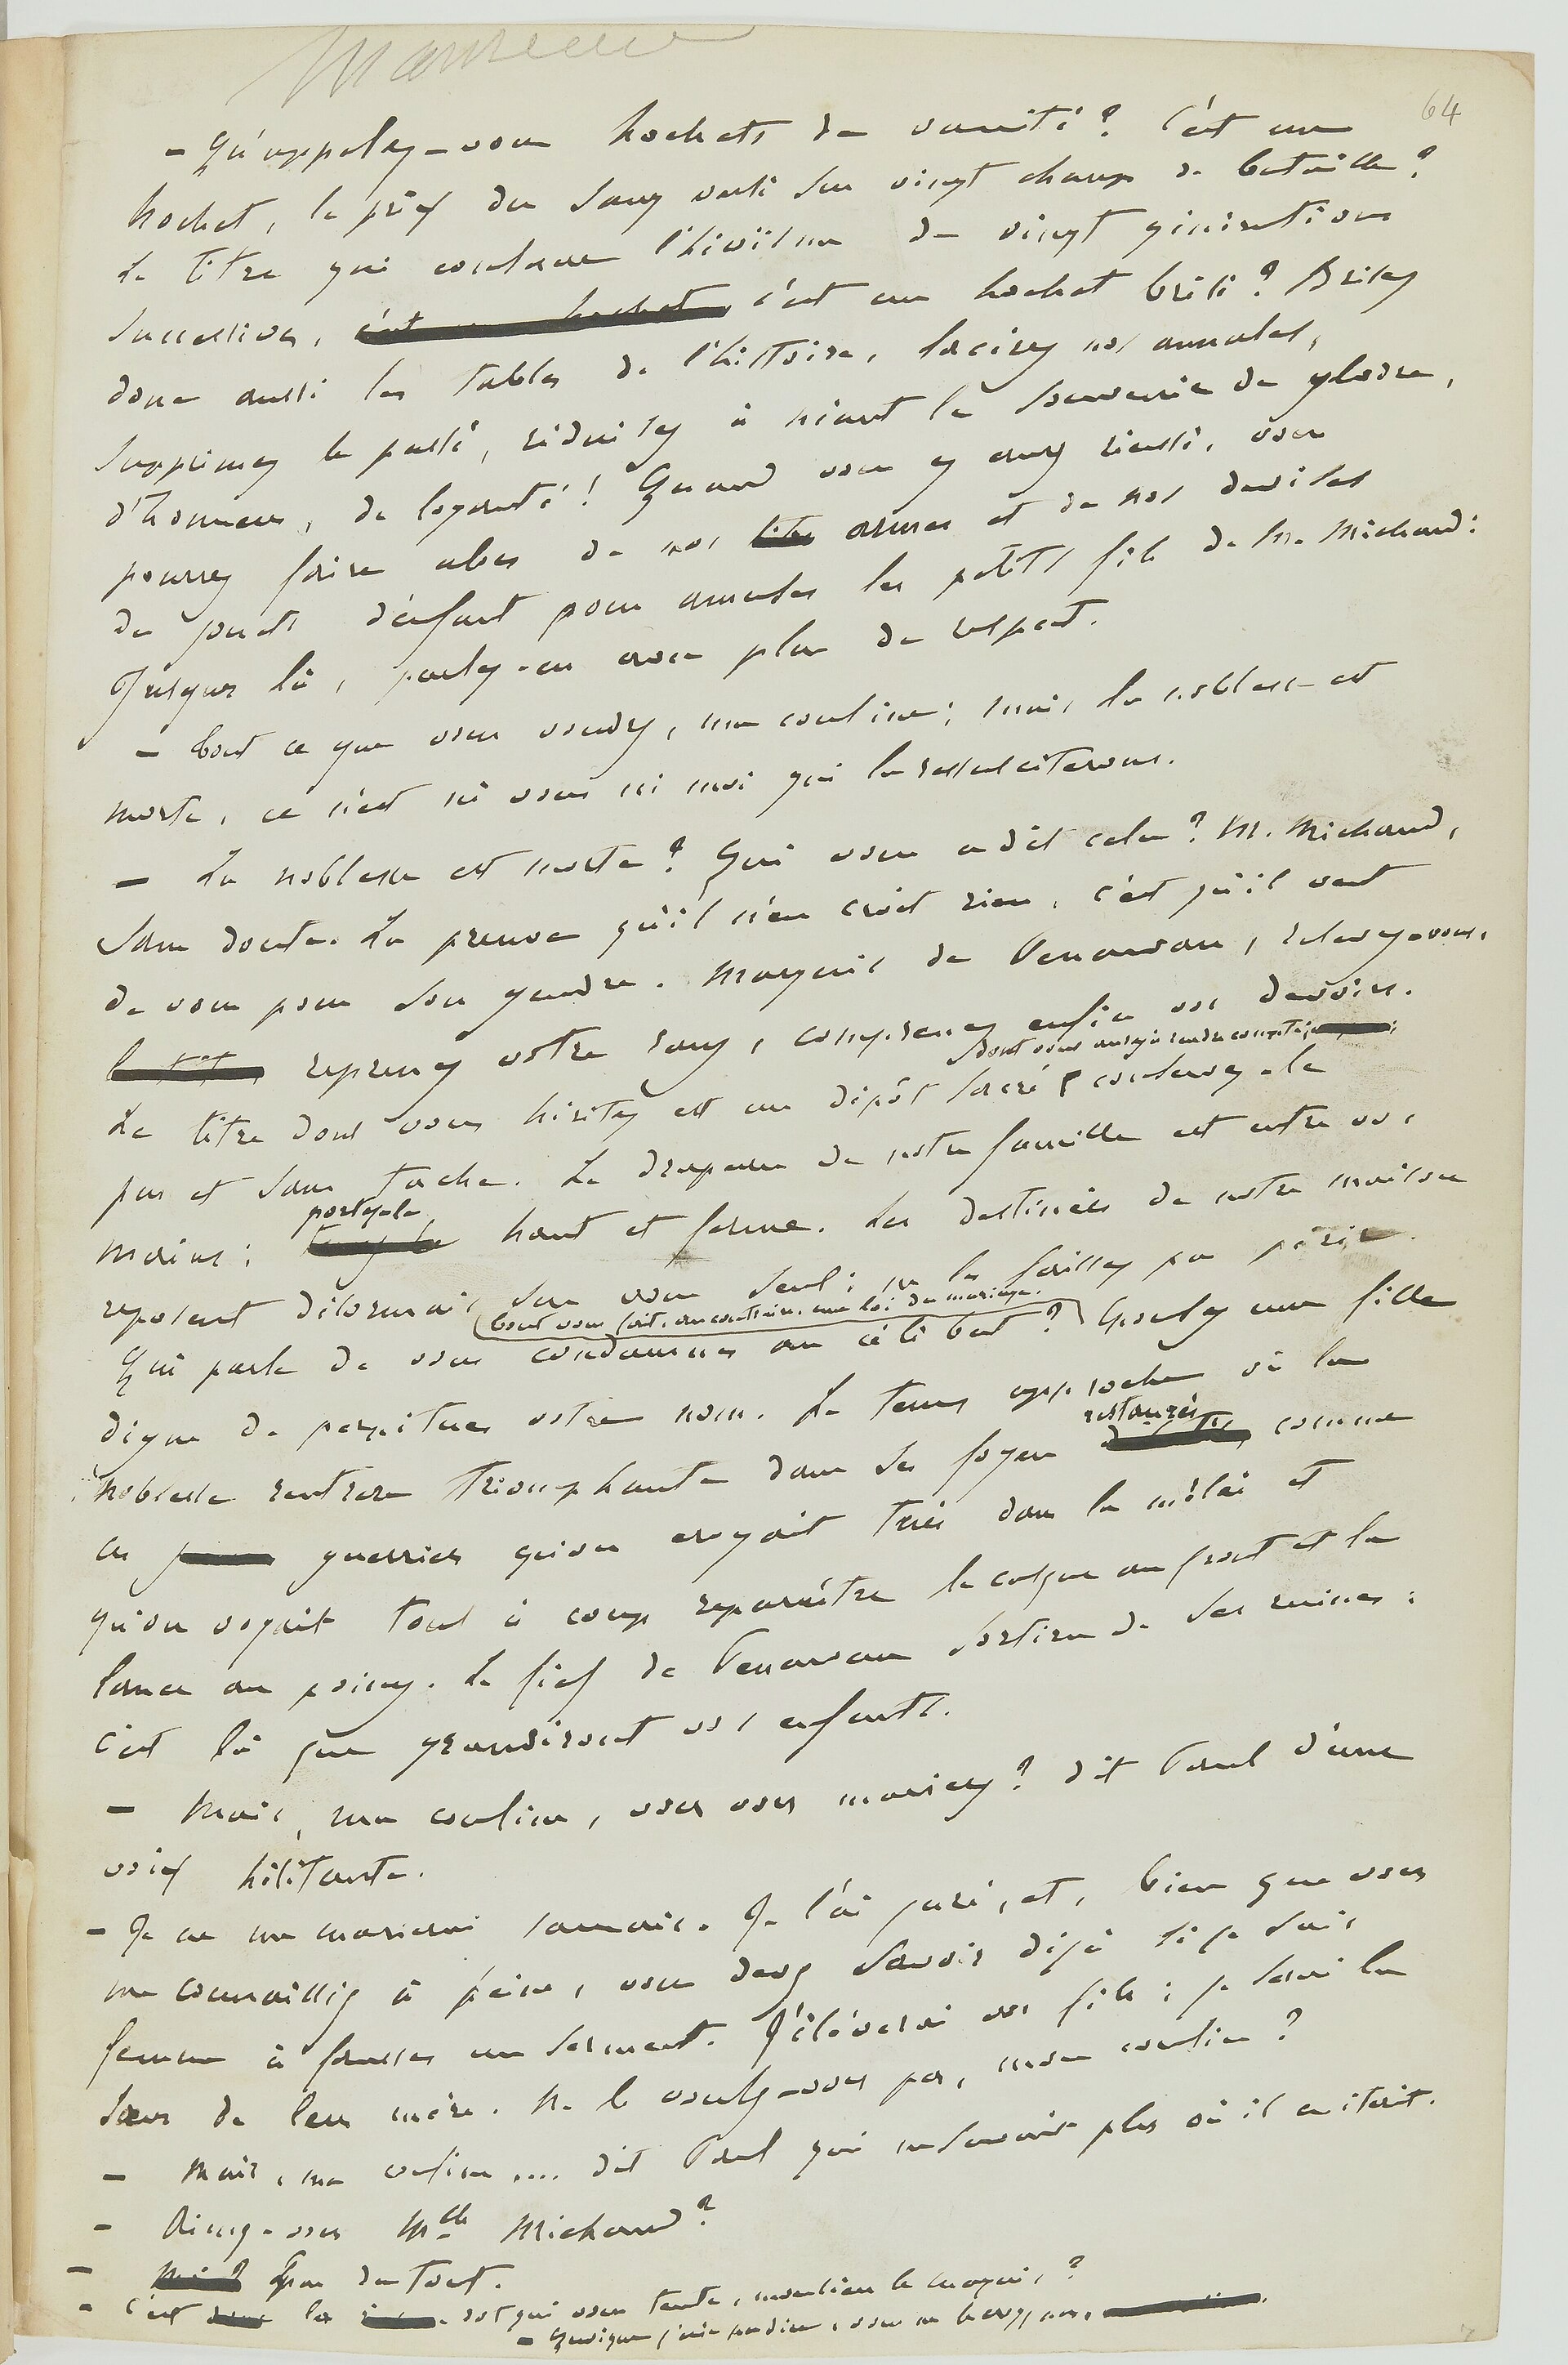 64
- Qu'appelez-vous hochets de vanité ? C'est un
hochet, le prix du sang versé sur vingt champs de bataille ?
Le titre qui consacre l'héroïsme de vingt générations
successives, c'est un hochet c'est un hochet brisé ? Brisez
donc aussi les tables de l'histoire, lacérez nos annales,
supprimez le passé, réduisez à néant le souvenir de gloire,
d'honneur, de loyauté ! Quand vous y aurez réussi, vous
pourrez faire alors de nos titres armes et de nos devises
des jouets d'enfant pour amuser les petits fils de M. Michaud :
Jusque là, parlez-en avec plus de respect.
- Tout ce que vous voudrez, ma cousine ; mais la noblesse est
morte, ce n'est ni vous ni moi qui la ressusciterons.
- La noblesse est morte ? Qui vous a dit cela ? M. Michaud,
sans doute. La preuve qu'il n'en croit rien, c'est qu'il veut
de vous pour son gendre. Marquis de Penarvan, relevez-vous,
reprenez votre rang, comprenez enfin vos devoirs.
dont vous aurez à rendre compte ;
Le titre dont vous héritez est un dépôt sacré conservez-le
pur et sans tache. Le drapeau de notre famille est entre vos
portez-le
mains : haut et ferme. Les destinées de notre maison
reposent désormais sur vous seul : ne les laissez pas périr.
Tout vous fait, au contraire, une loi du mariage.
Qui parle de vous condamner au célibat ? Épousez une fille
digne de perpétuer votre nom. Le temps approche où la
restaurés
noblesse rentrera triomphante dans ses foyers comme
ces guerriers qu'on croyait tués dans la mêlée et
qu'on voyait tout à coup reparaître le casque au front et la
lance au poing. Le fief de Penarvan sortira de ses ruines :
c'est là que grandiront vos enfants.
- Mais, ma cousine, vous vous mariez ? dit Paul d'une
voix hésitante.
- Je ne me marierai jamais. Je l'ai juré, et, bien que vous
me connaissiez à peine, vous devez savoir déjà si je suis
femme à fausser un serment. J'élèverai vos fils ; je serai la
sœur de leur mère. Ne le voulez-vous pas, mon cousin ?
- Mais, ma cousine .... dit Paul qui ne savait plus où il en était.
- Aimez-vous Mlle Michaud ?
- Pas du tout.
- C'est la dot qui vous tente, monsieur le marquis ?
- Quoique j'aie pu dire, vous ne le croyez pas,